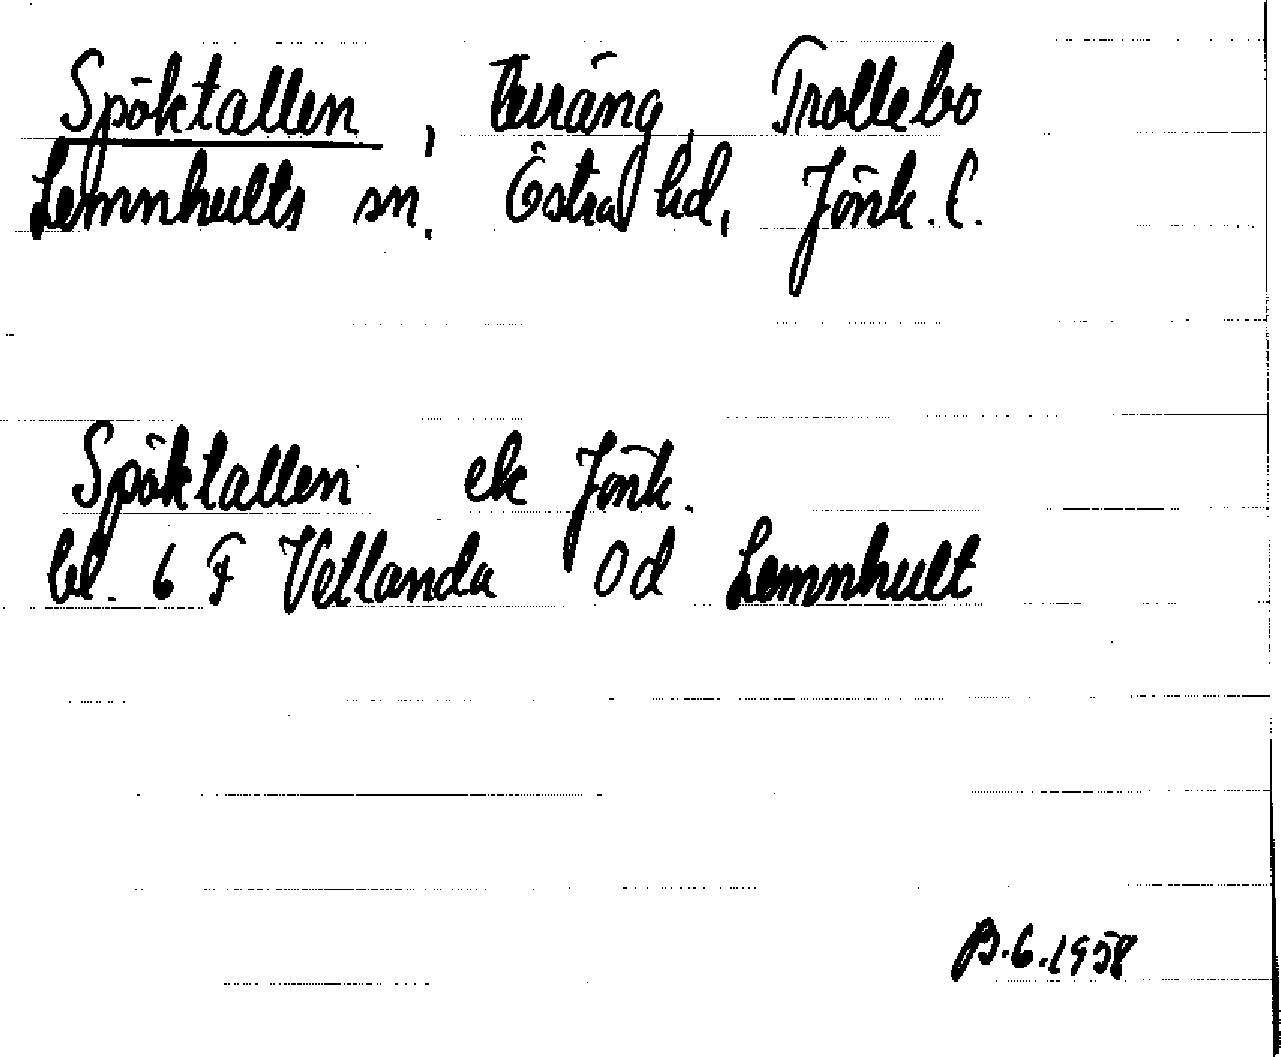 Spöktallen, terräng, Trollebo
Lemnhults sn. Östra hd, Jönk. l.
Spöktallen ek Jönk.
bl. 6 F Vetlanda Od Lemnhult
B.G.1958